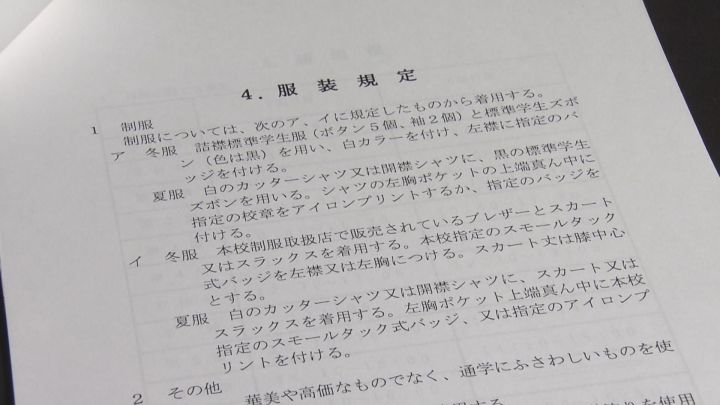 4．服 装 規 定
1　制服
制服については、次のア、イに規定したものから着用する。
ア　冬服　詰襟標準学生服（ボタン５個、袖２個）と標準学生ズボ
ン（色は黒）を用い、白カラーを付け、左襟に指定のバ
ッジを付ける。
夏服　白のカッターシャツ又は開襟シャツに、黒の標準学生
ズボンを用いる。シャツの左胸ポケットの上端真ん中に
指定の校章をアイロンプリントするか、指定のバッジを
付ける。
イ　冬服　本校制服取扱店で販売されているブレザーとスカート
又はスラックスを着用する。本校指定のスモールタック
式バッジを左襟又は左胸につける。スカート丈は膝中心
とする。
夏服　白のカッターシャツ又は開襟シャツに、スカート又は
スラックスを着用する。左胸ポケット上端真ん中に本校
指定のスモールタック式バッジ、又は指定のアイロンプ
リントを付ける。
2　その他
華美や高価なものでなく、通学にふさわしいものを使
用する
を使用